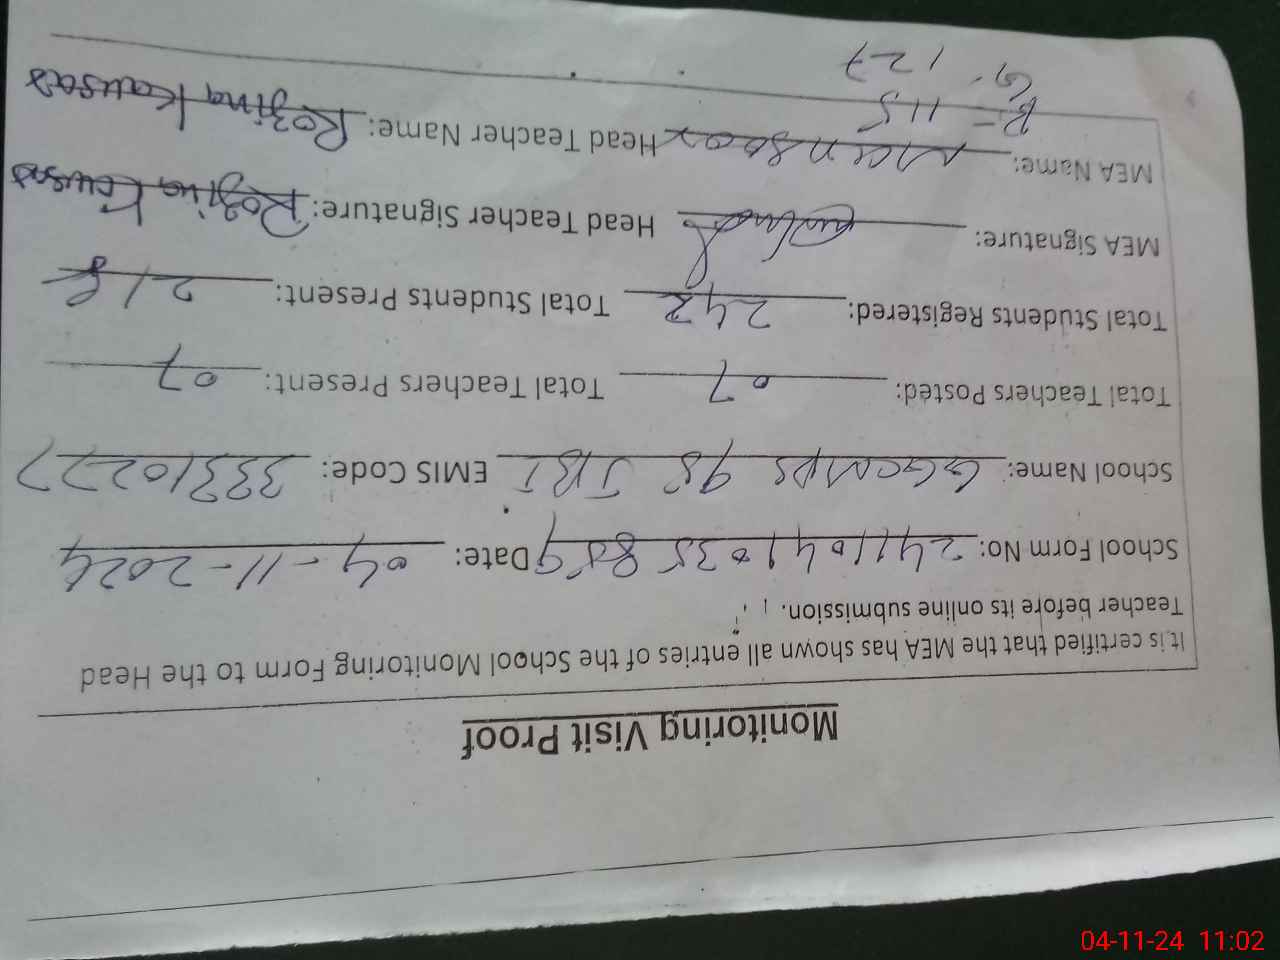 Monitoring Visit Proof
It is certified that the MEA has shown all entries of the School Monitoring Form to the Head
Teacher before its online submission.
School Form No: 241104103585 9 Date: 04-11-2024
School Name: GGCMPS 98 JBI EMIS Code: 33310277
Total Teachers Posted: 07 Total Teachers Present: 07
Total Students Registered: 242 Total Students Present: 218
MEA Signature: Head Teacher Signature: Rozina Kausar
MEA Name: Head Teacher Name: Rozina Kausar
B- 115
G- 127
04-11-24 11:02